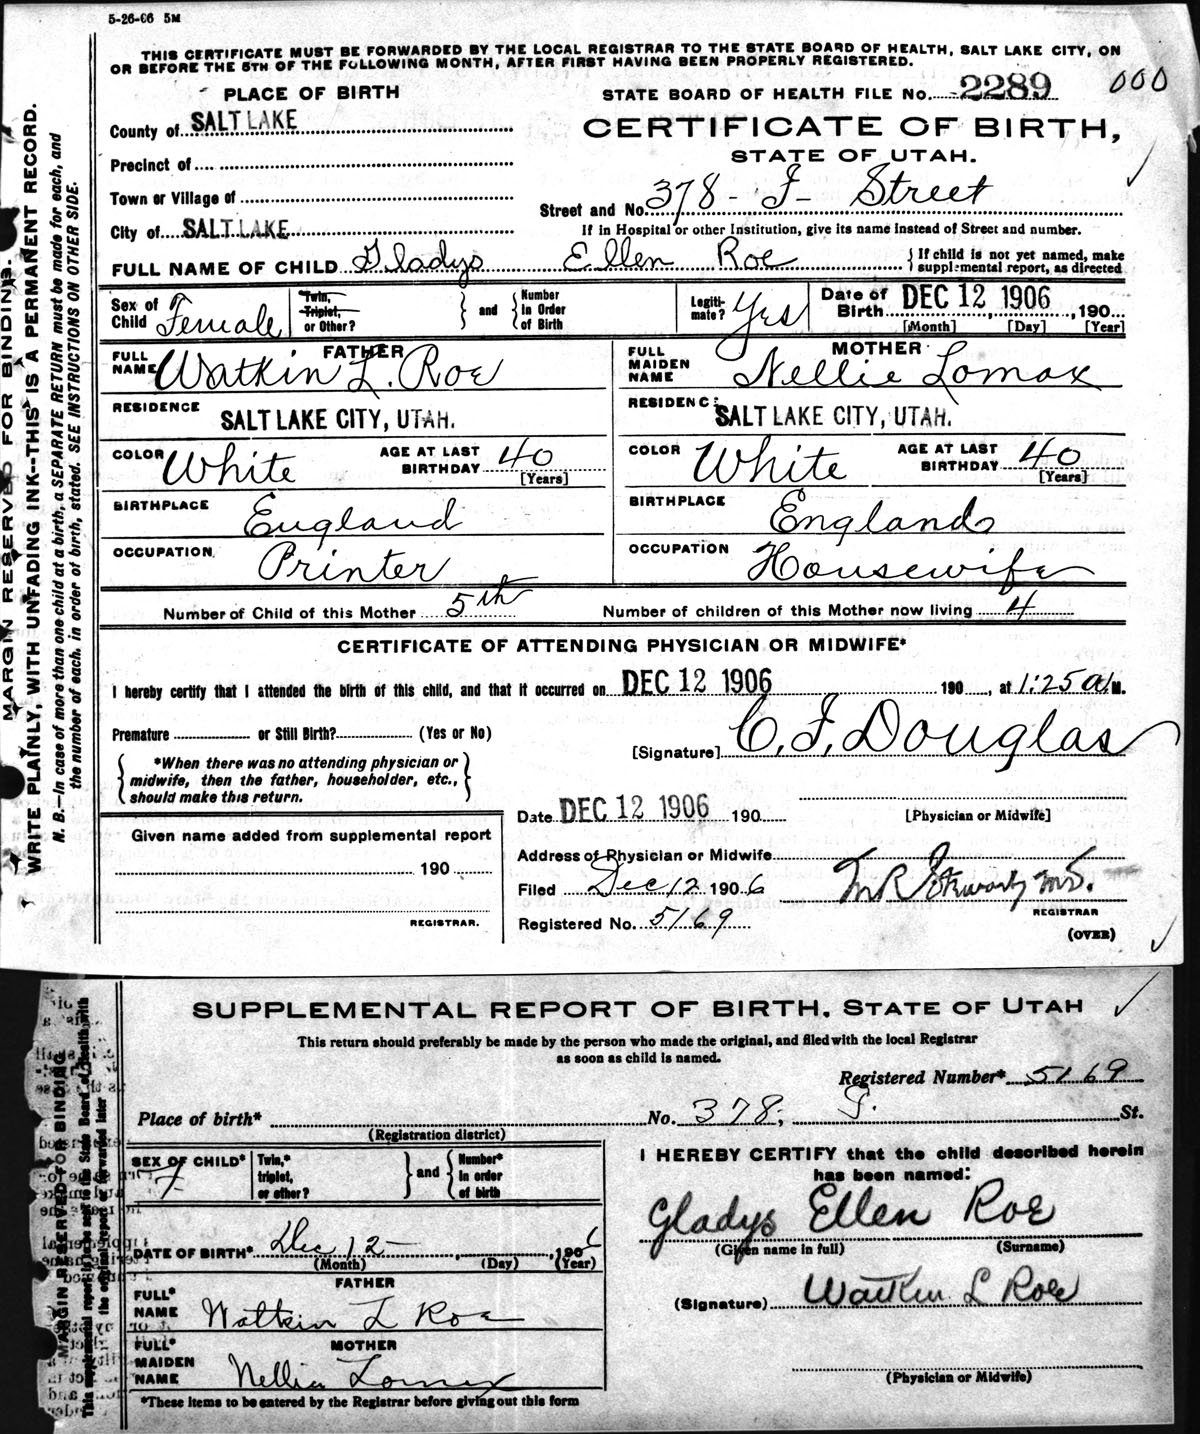 5-26-06 5M
THIS CERTIFICATE MUST BE FORWARDED BY THE LOCAL REGISTRAR TO THE STATE BOARD OF HEALTH, SALT LAKE CITY, ON
OR BEFORE THE 5TH OF THE FOLLOWING MONTH, AFTER FIRST HAVING BEEN PROPERLY REGISTERED.
PLACE OF BIRTH
STATE BOARD OF HEALTH FILE No. 2289 000
County of SALT LAKE
CERTIFICATE OF BIRTH,
STATE OF UTAH.
Precinct of
Town or Village of
Street and No. 378 - F - Street
City of SALT LAKE
If in Hospital or other Institution, give its name instead of Street and number.
FULL NAME OF CHILD Gladys Ellen Roe
If child is not yet named, make
supplemental report, as directed
Sex of Child Female
Twin, Triplet, or Other?
and
Number in Order of Birth
Legiti-mate? Yes
Date of Birth DEC 12 1906, 190
[Month] [Day] [Year]
FATHER
FULL NAME Watkin L. Roe
MOTHER
FULL MAIDEN NAME Nellie Lomax
RESIDENCE SALT LAKE CITY, UTAH.
RESIDENCE SALT LAKE CITY, UTAH.
COLOR White AGE AT LAST BIRTHDAY 40 [Years]
COLOR White AGE AT LAST BIRTHDAY 40 [Years]
BIRTHPLACE England
BIRTHPLACE England
OCCUPATION Printer
OCCUPATION Housewife
Number of Child of this Mother 5th Number of children of this Mother now living 4
CERTIFICATE OF ATTENDING PHYSICIAN OR MIDWIFE*
I hereby certify that I attended the birth of this child, and that it occurred on DEC 12 1906 190 , at 1:25 a M.
Premature or Still Birth? (Yes or No)
[Signature] C. F. Douglas
*When there was no attending physician or
midwife, then the father, householder, etc.,
should make this return.
Date DEC 12 1906 190
[Physician or Midwife]
Given name added from supplemental report
190
REGISTRAR.
Address of Physician or Midwife
Filed Dec 12 1906
M.D.
REGISTRAR
Registered No. 5169
(OVER)
MARGIN RESERVED FOR BINDING.
WRITE PLAINLY, WITH UNFADING INK--THIS IS A PERMANENT RECORD.
N. B.—In case of more than one child at a birth, a SEPARATE RETURN must be made for each, and
the number of each, in order of birth, stated. SEE INSTRUCTIONS ON OTHER SIDE.
SUPPLEMENTAL REPORT OF BIRTH, STATE OF UTAH
This return should preferably be made by the person who made the original, and filed with the local Registrar
as soon as child is named.
Registered Number* 5169
Place of birth* No. 378, St.
(Registration district)
SEX OF CHILD* F
Twin,* triplet, or other?
and
Number* in order of birth
I HEREBY CERTIFY that the child described herein
has been named:
Gladys Ellen Roe
(Given name in full) (Surname)
DATE OF BIRTH* Dec 12, 1906
(Month) (Day) (Year)
FATHER
FULL* NAME Watkin L Roe
(Signature) Watkin L Roe
MOTHER
FULL* MAIDEN NAME Nellie Lomax
(Physician or Midwife)
*These items to be entered by the Registrar before giving out this form
MARGIN RESERVED FOR BINDING